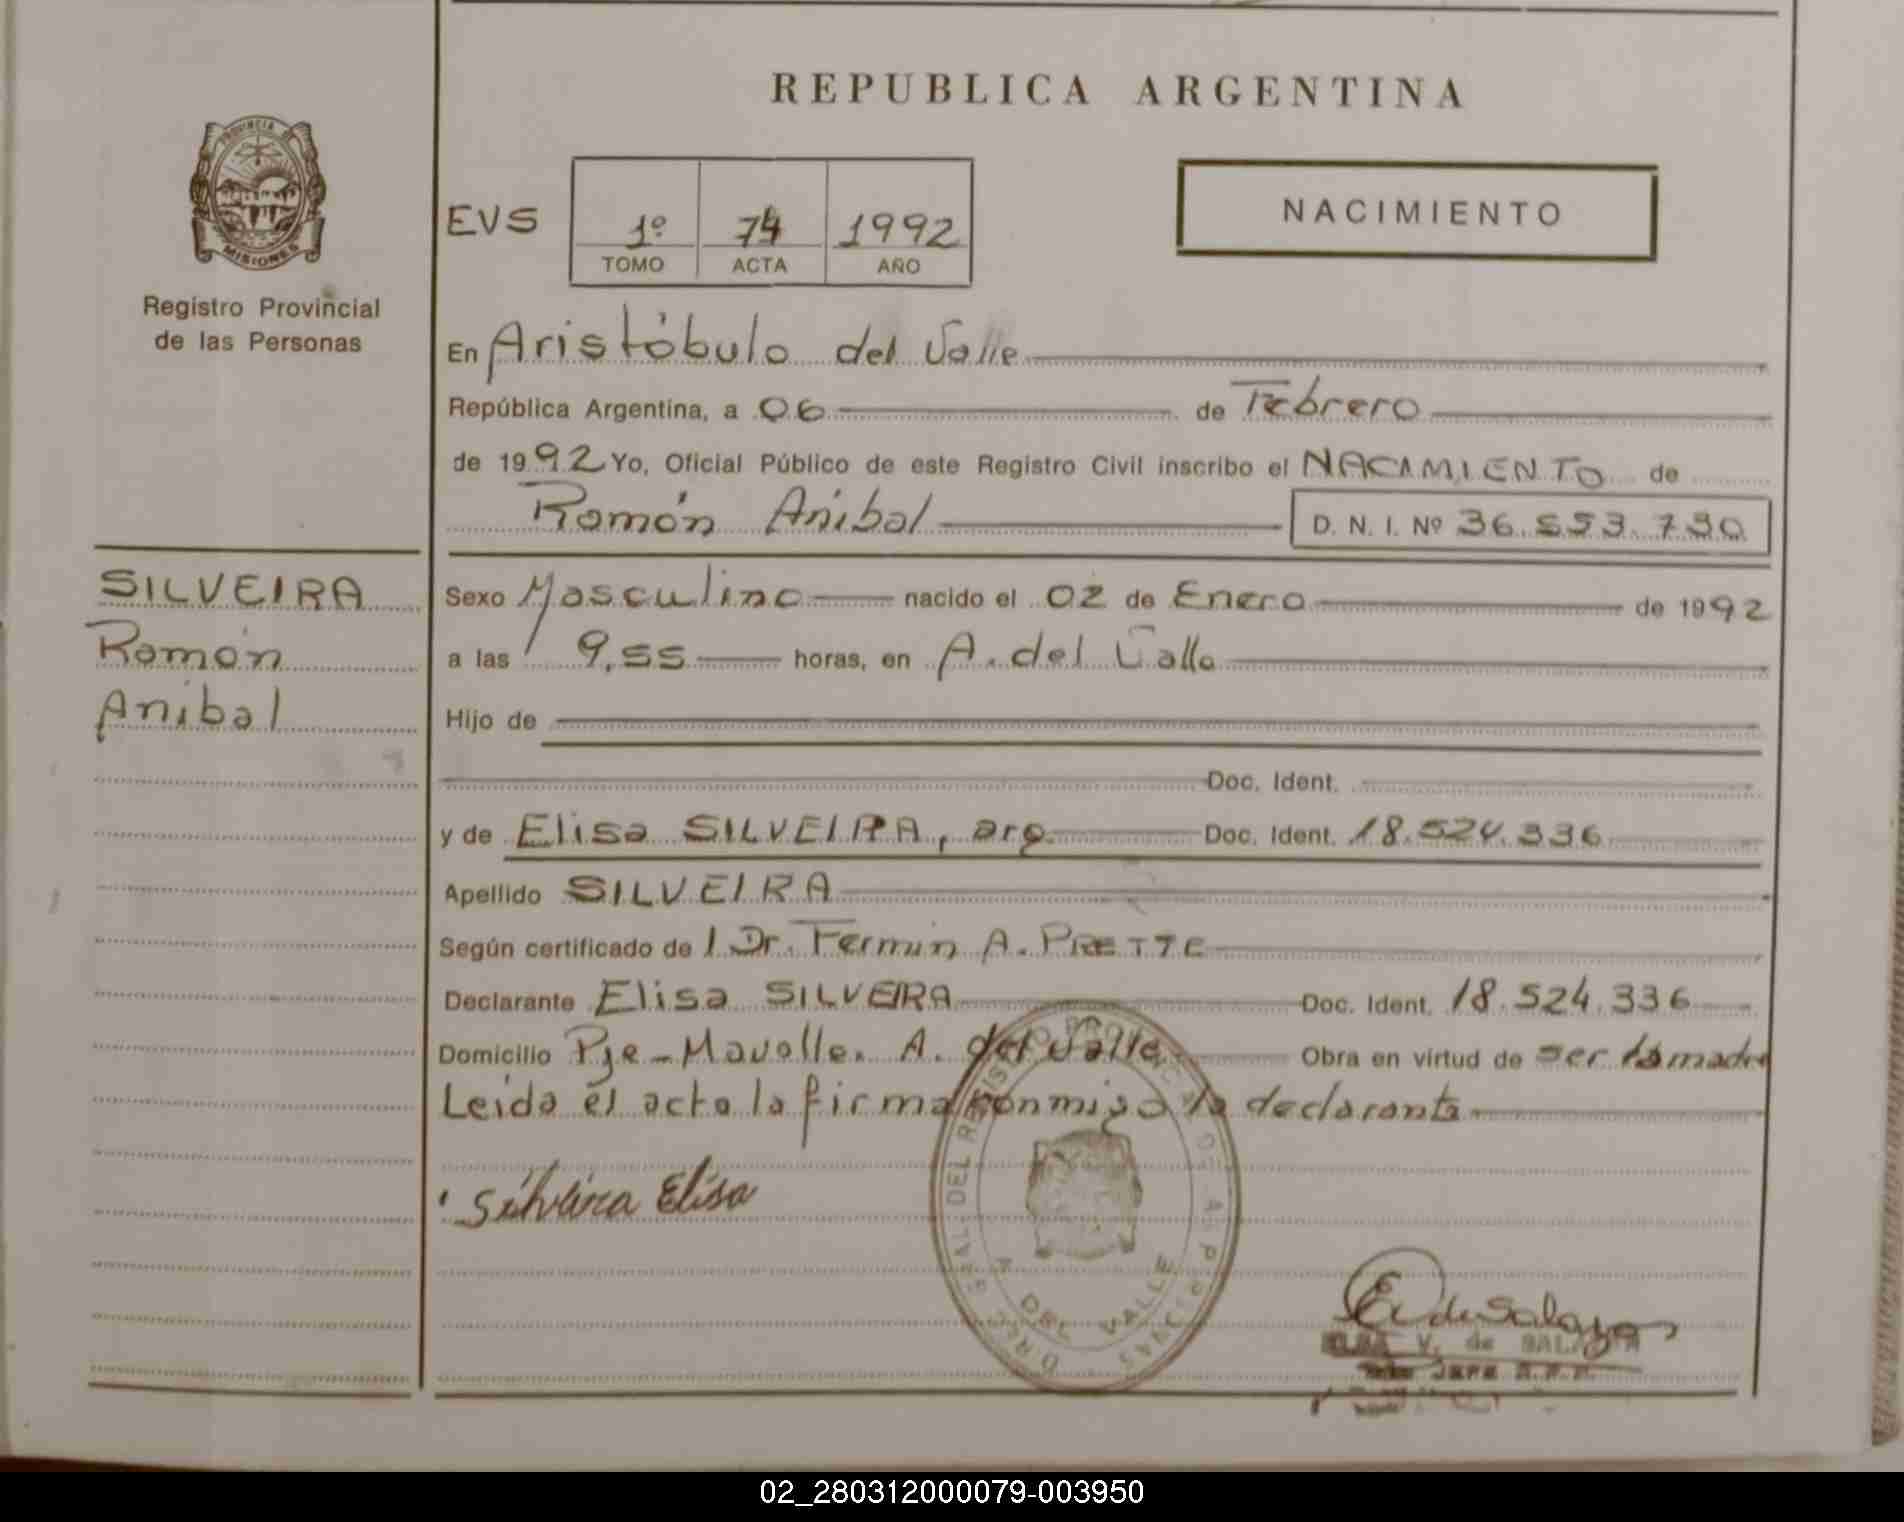 REPUBLICA ARGENTINA
PROVINCIA DE
MISIONES
Registro Provincial
de las Personas
EVS
1º 74 1992
TOMO ACTA AÑO
NACIMIENTO
En Aristóbulo del Valle
República Argentina, a 06 de Febrero
de 1992 Yo, Oficial Público de este Registro Civil inscribo el NACIMIENTO de
Ramón Anibal D. N. I. Nº 36.553.730
SILVEIRA
Ramón
Anibal
Sexo Masculino nacido el 02 de Enero de 1992
a las 9,55 horas, en A. del Valle
Hijo de
Doc. Ident.
y de Elisa SILVEIRA, arg. Doc. Ident. 18.524.336
Apellido SILVEIRA
Según certificado de l Dr. Fermin A. PRETTE
Declarante Elisa SILVEIRA Doc. Ident. 18.524.336
Domicilio Pje- Mavalle. A. del Valle. Obra en virtud de ser la madre
Leida el acta la firma conmigo la declarante
Silveira Elisa
A. DEL VALLE
E. de Salaya
V. de
02_280312000079-003950